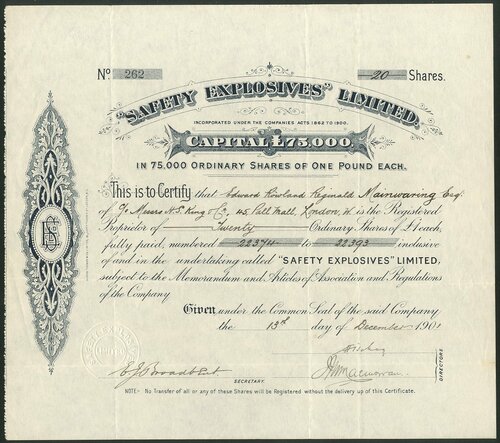 No. 262 20 Shares.
"SAFETY EXPLOSIVES" LIMITED.
INCORPORATED UNDER THE COMPANIES ACTS 1862 TO 1900.
CAPITAL £75,000,
IN 75,000 ORDINARY SHARES OF ONE POUND EACH.
This is to Certify that Edward Rowland Reginald Mainwaring Esq
of c/o Messrs H.S. King & Co, 45 Pall Mall, London, W. is the Registered
Proprietor of Twenty Ordinary Shares of £1 each,
fully paid, numbered 22374 to 22393 inclusive
of and in the undertaking called "SAFETY EXPLOSIVES" LIMITED,
subject to the Memorandum and Articles of Association and Regulations
of the Company.
Given under the Common Seal of the said Company
the 13th day of December 1901
E J Broadbent
SECRETARY.
DIRECTORS
NOTE:- No Transfer of all or any of these Shares will be Registered without the delivery up of this Certificate.